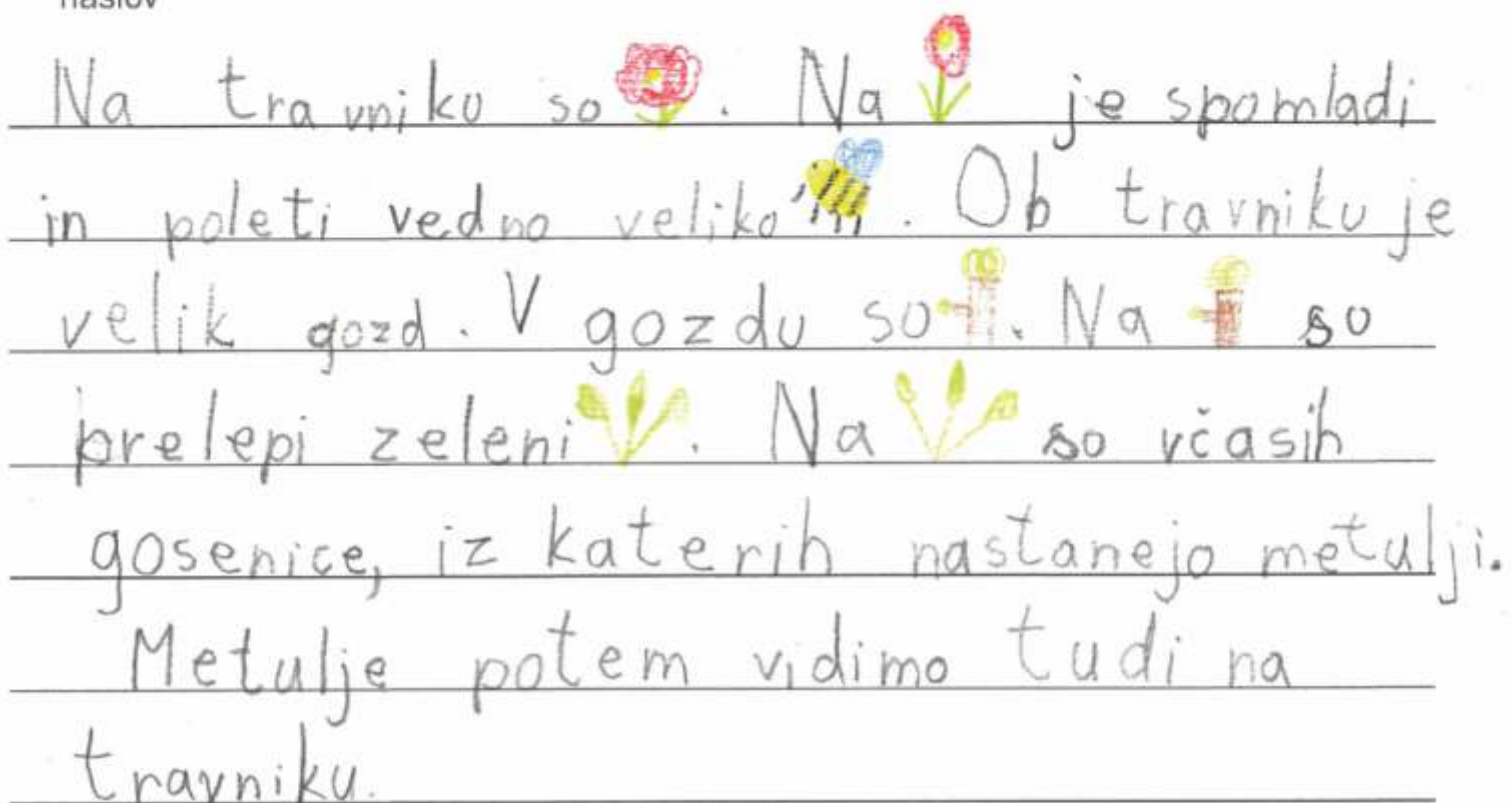 naslov
Na travniku so . Na je spomladi
in poleti vedno veliko . Ob travniku je
velik gozd. V gozdu so . Na so
prelepi zeleni . Na so včasih
gosenice, iz katerih nastanejo metulji.
Metulje potem vidimo tudi na
travniku.